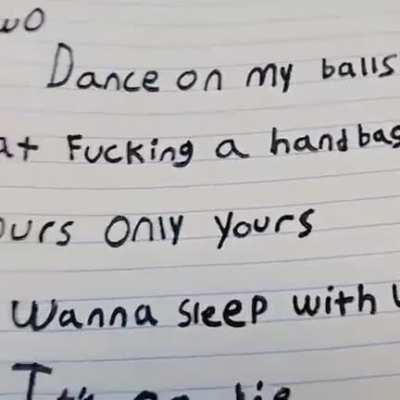 Dance on my balls
Fucking a handbag
ours only yours
Wanna sleep with